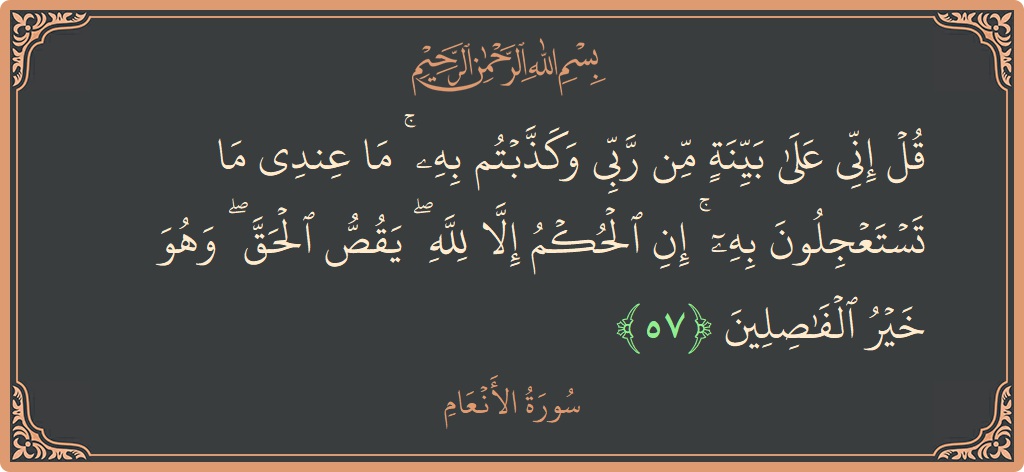 بِسْمِ اللهِ الرَّحْمٰنِ الرَّحِيْمِ
قُلۡ إِنِّي عَلَىٰ بَيِّنَةٖ مِّن رَّبِّي وَكَذَّبۡتُم بِهِۦۚ مَا عِندِي مَا
تَسۡتَعۡجِلُونَ بِهِۦٓۚ إِنِ ٱلۡحُكۡمُ إِلَّا لِلَّهِۖ يَقُصُّ ٱلۡحَقَّۖ وَهُوَ
خَيۡرُ ٱلۡفَٰصِلِينَ ﴿٥٧﴾
سُورَةُ الأَنۡعَامِ